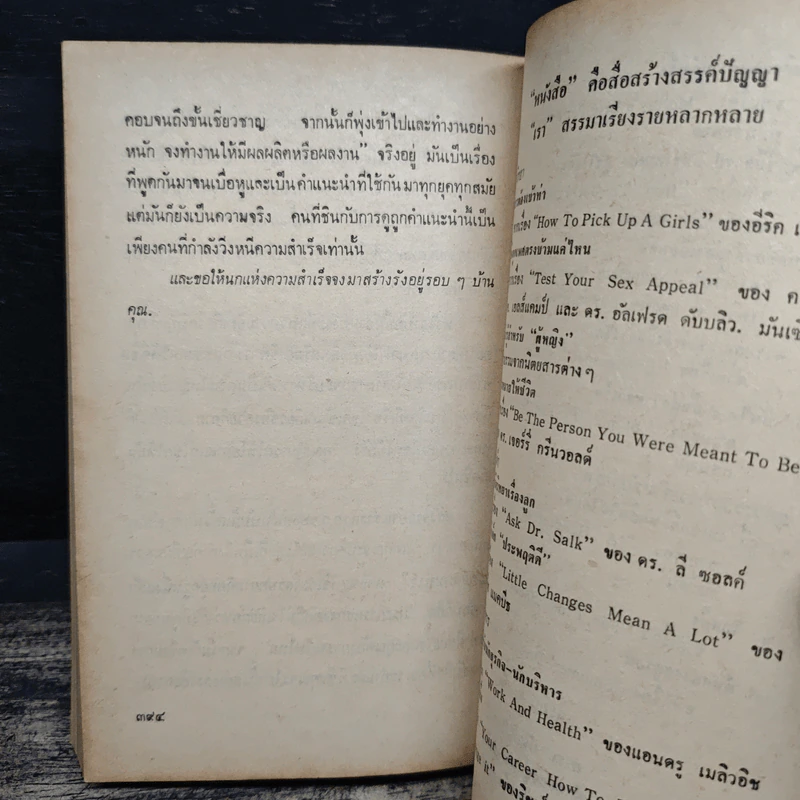 คอบจนถึงขั้นเชี่ยวชาญ จากนั้นก็พุ่งเข้าไปและทำงานอย่าง
หนัก จงทำงานให้มีผลผลิตหรือผลงาน” จริงอยู่ มันเป็นเรื่อง
ที่พูดกันมาจนเบื่อหูและเป็นคำแนะนำที่ใช้กันมาทุกยุคทุกสมัย
แต่มันก็ยังเป็นความจริง คนที่ชินกับการดูถูกคำแนะนำนี้เป็น
เพียงคนที่กำลังวิ่งหนีความสำเร็จเท่านั้น
และขอให้นกแห่งความสำเร็จจงมาสร้างรังอยู่รอบ ๆ บ้าน
คุณ.
๓๙๔
“หนังสือ” คือสื่อสร้างสรรค์ปัญญา
“เรา” สรรมาเรียงรายหลากหลาย
“How To Pick Up A Girls” ของอีริค
เพศตรงข้ามแค่ไหน
“Test Your Sex Appeal” ของ
และ ดร. อัลเฟรด ดับบลิว.
สำหรับ “ผู้หญิง”
จากนิตยสารต่าง ๆ
ให้ชีวิต
“Be The Person You Were Meant To Be
ดร. เจอร์รี่ กรีนวอลด์
เรื่องลูก
“Ask Dr. Salk” ของ ดร. ลี ซอลค์
“ประพฤติดี”
“Little Changes Mean A Lot” ของ
ธุรกิจ-นักบริหาร
“Work And Health” ของแอนดรู เมลิวอิช
“Your Career How To
it” ของ